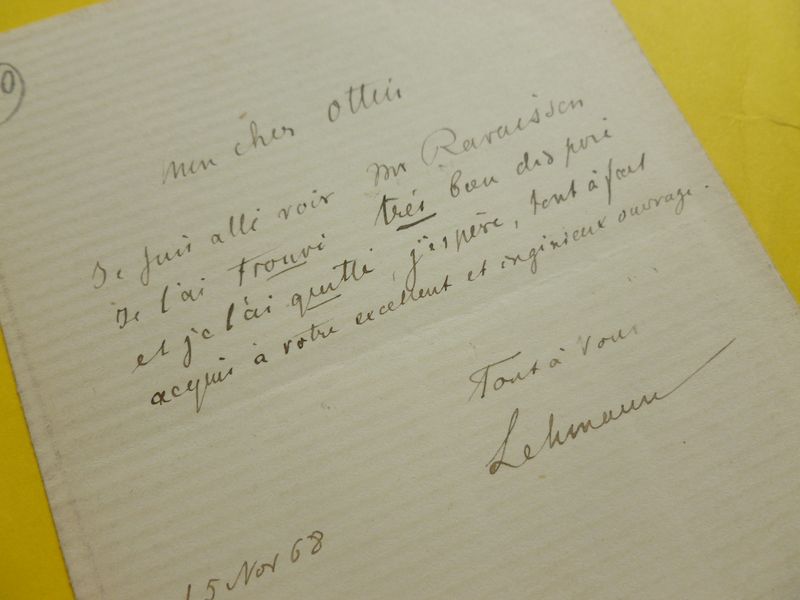 0
Mon cher Ottin
Je suis allé voir Mr Ravaisson
Je l'ai trouvé très bien disposé
et je l'ai quitté, j'espère, tout à fait
acquis à votre excellent et ingénieux ouvrage.
Tout à vous
Lehmann
15 Nov 68